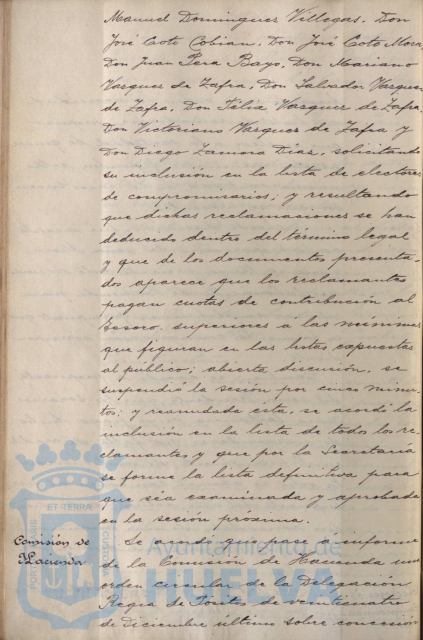 Manuel Dominguez Villegas, Don
José Coto Cobian, Don José Coto Mora,
Don Juan Pera Bayo, Don Mariano
Vazquez de Zafra, Don Salvador Vazquez
de Zafra, Don Félix Vazquez de Zafra,
Don Victoriano Vazquez de Zafra y
Don Diego Zamora Diaz, solicitando
su inclusión en la lista de electores
de compromisarios; y resultando
que dichas reclamaciones se han
deducido dentro del término legal
y que de los documentos presenta-
dos aparece que los reclamantes
pagan cuotas de contribución al
Tesoro superiores á las mínimas
que figuran en las listas expuestas
al público; abierta discusión, se
suspendió la sesión por cinco minu-
tos; y reanudada esta, se acordó la
inclusión en la lista de todos los re-
clamantes y que por la Secretaría
se forme la lista definitiva para
que sea examinada y aprobada
en la sesión próxima.
Comisión de
Hacienda
Se acordó que pase á informe
de la Comisión de Hacienda una
orden circular de la Delegación
Regia de Pósitos de veinticuatro
de diciembre último sobre concesión
ET TERRA
Ayuntamiento de
HUELVA